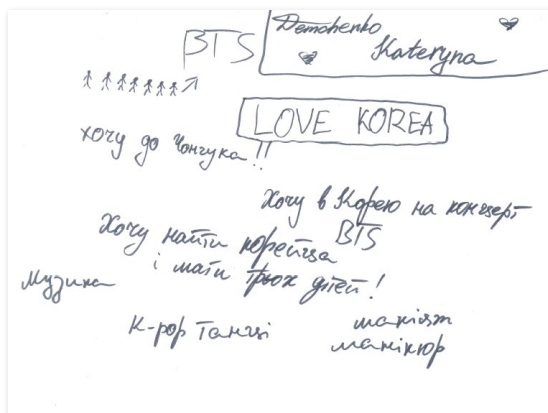 Demchenko
Kateryna
BTS
LOVE KOREA
хочу до Чонгука!!
Хочу в Корею на концерт
BTS
Хочу найти корейца
і мати трьох дітей!
Музика
K-pop Танці
макіяж
манікюр